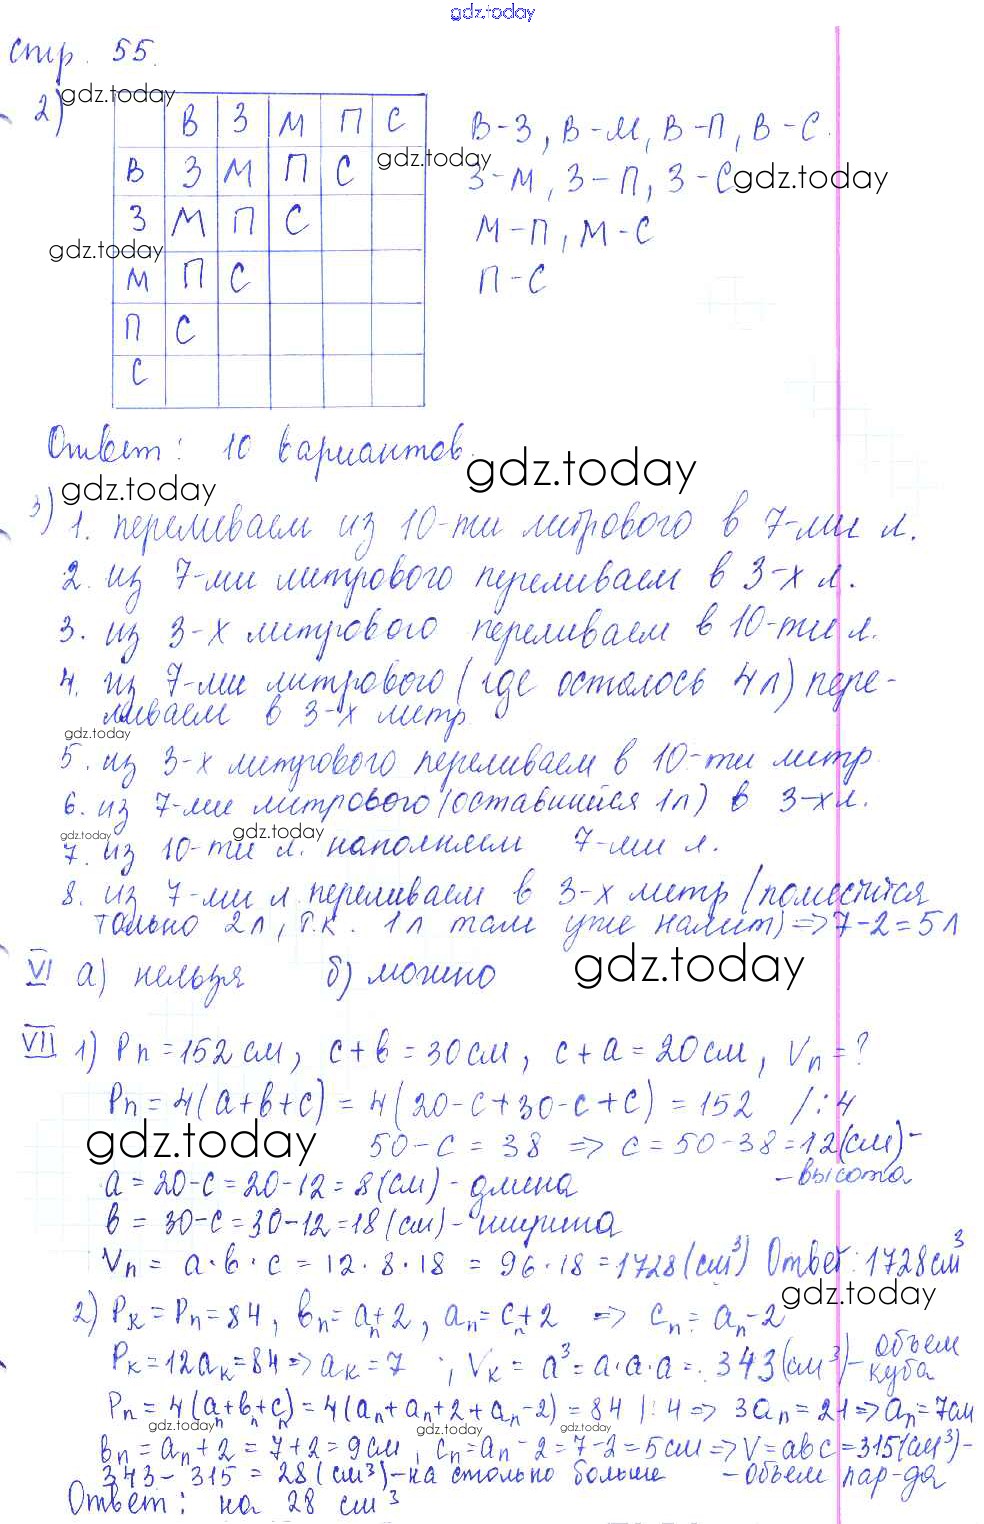 gdz.today
стр. 55.
2)
gdz.today
В З М П С
В З М П С
З М П С
М П С
П С
С
В-З, В-М, В-П, В-С.
gdz.today
З-М, З-П, З-С
gdz.today
М-П, М-С
gdz.today
П-С
Ответ: 10 вариантов.
gdz.today
gdz.today
3) 1. переливаем из 10-ти литрового в 7-ми л.
2. из 7-ми литрового переливаем в 3-х л.
3. из 3-х литрового переливаем в 10-ти л.
4. из 7-ми литрового (где осталось 4л) пере-
ливаем в 3-х литр
gdz.today
5. из 3-х литрового переливаем в 10-ти литр.
6. из 7-ми литрового (оставшийся 1л) в 3-х л.
gdz.today
gdz.today
7. из 10-ти л. наполняем 7-ми л.
8. из 7-ми л переливаем в 3-х литр (поместится
только 2л, т.к. 1л там уже налит) => 7-2=5л
VI а) нельзя б) можно
gdz.today
VII 1) Pп = 152 см, c+в = 30 см, c+a = 20 см, Vп = ?
Pп = 4(a+в+c) = 4(20-c+30-c+c) = 152 /:4
gdz.today
50-c = 38 => c = 50-38 = 12(см) -
- высота
a = 20-c = 20-12 = 8(см) - длина
в = 30-c = 30-12 = 18(см) - ширина
Vп = a·в·c = 12·8·18 = 96·18 = 1728(см³) Ответ: 1728 см³
gdz.today
2) Pк = Pп = 84, вп = aп+2, aп = cп+2 => cп = aп-2
Pк = 12aк = 84 => aк = 7 ; Vк = a³ = a·a·a = 343(см³) - объем куба
Pп = 4(aп+вп+cп) = 4(aп+aп+2+aп-2) = 84 /:4 => 3aп = 21 => aп = 7см
gdz.today
gdz.today
gdz.today
вп = aп+2 = 7+2 = 9см, cп = aп-2 = 7-2 = 5см => V = aвc = 315(см³) -
343 - 315 = 28(см³) - на столько больше - объем пар-да
Ответ: на 28 см³